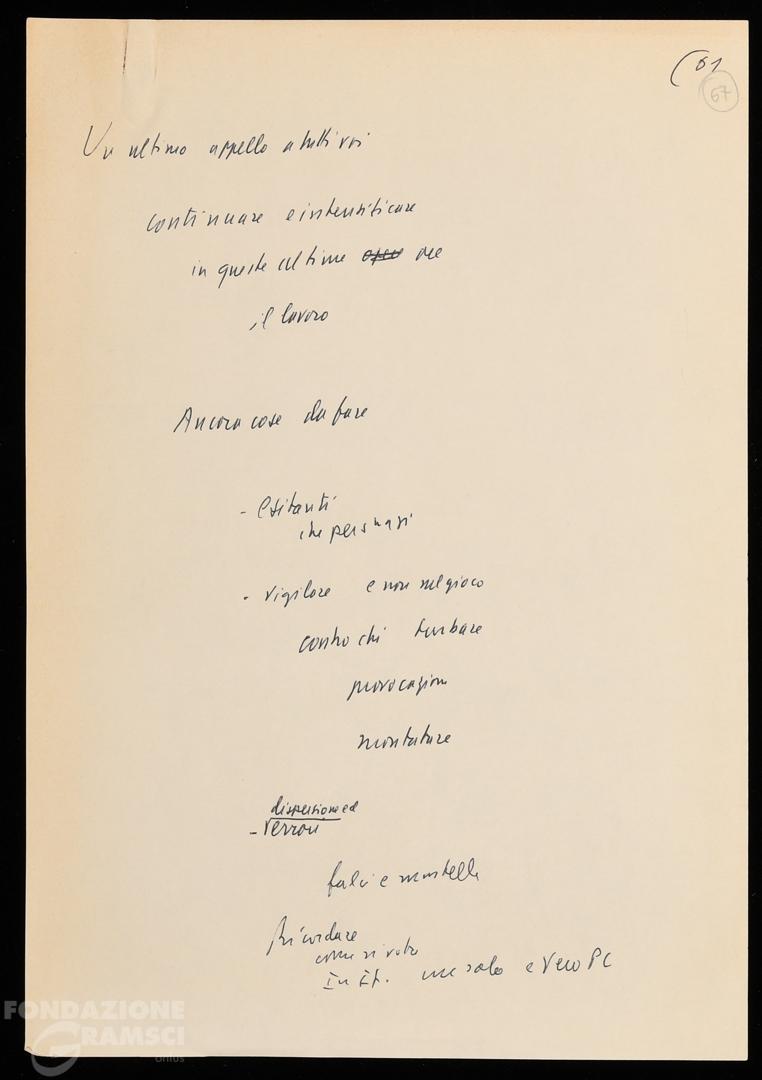 (61
67
Un ultimo appello a tutti voi
continuare e intensificare
in queste ultime ore
il lavoro
Ancora cose da fare
- Esitanti
che persuasi
- vigilare e non nel gioco
contro chi turbare
provocazioni
montature
dispersione ed
- errori
falci e martelli
Ricordare
come si vota
In It. un solo e vero PC
FONDAZIONE
GRAMSCI
onlus